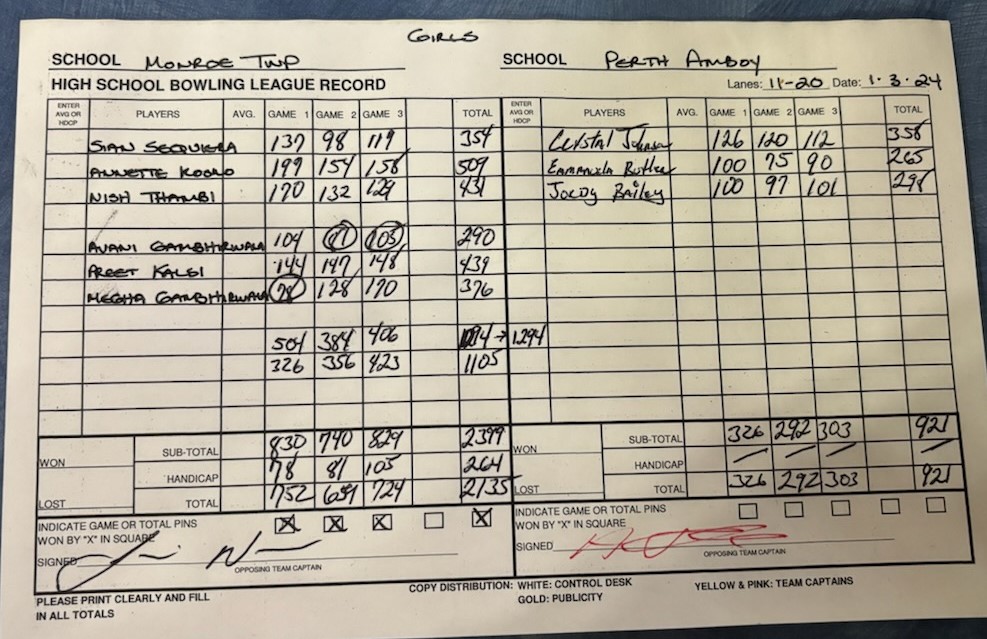 GIRLS
SCHOOL MONROE TWP SCHOOL PERTH AMBOY
HIGH SCHOOL BOWLING LEAGUE RECORD Lanes: 11-20 Date: 1.3.24
ENTER AVG OR HDCP PLAYERS AVG. GAME 1 GAME 2 GAME 3 TOTAL ENTER AVG OR HDCP PLAYERS AVG. GAME 1 GAME 2 GAME 3 TOTAL
SIAN SEQUEIRA 137 98 119 354 Crystal Johnson 126 120 112 358
ANNETTE KOORO 197 154 158 509 Emmanuela Butler 100 75 90 265
NISH THAMBI 170 132 129 431 Jordy Bailey 100 97 101 298
AVANI GAMBHIRWALA 104 81 105 290
PREET KALSI 144 147 148 439
MEGHA GAMBHIRWALA 78 128 170 376
504 384 406 → 1294
326 356 423 1105
SUB-TOTAL 830 740 829 2399 SUB-TOTAL 326 292 303 921
WON WON
HANDICAP 78 81 105 264 HANDICAP
LOST TOTAL 752 659 724 2135 LOST TOTAL 326 292 303 921
INDICATE GAME OR TOTAL PINS WON BY "X" IN SQUARE X X X X INDICATE GAME OR TOTAL PINS WON BY "X" IN SQUARE
SIGNED SIGNED
OPPOSING TEAM CAPTAIN OPPOSING TEAM CAPTAIN
PLEASE PRINT CLEARLY AND FILL COPY DISTRIBUTION: WHITE: CONTROL DESK YELLOW & PINK: TEAM CAPTAINS
IN ALL TOTALS GOLD: PUBLICITY